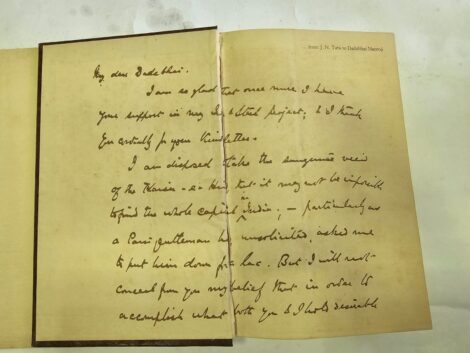 from J. N. Tata to Dadabhai Naoroji
My dear Dadabhai.
I am so glad that once more I have
your support in my & Steel project; & I thank
you cordially for your kind letter.
I am disposed to take the sanguine view
of the Kaiser-e-Hind that it may not be impossible
to find the whole capital in India; — particularly as
a Parsi gentleman has, unsolicited, asked me
to put him down for a lac. But I will not
conceal from you my belief that in order to
accomplish what both you & I hold desirable